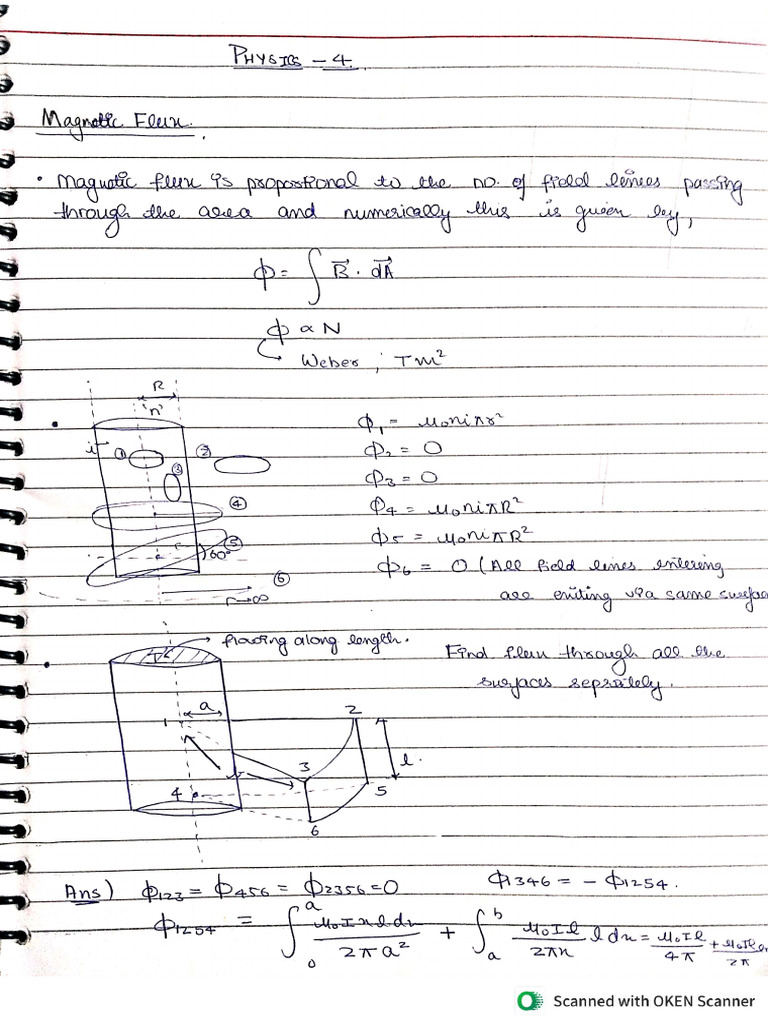 PHYSICS - 4.
Magnetic Flux.
• Magnetic flux is proportional to the no. of field lines passing
through the area and numerically this is given by,
ϕ = ∫ B⃗ · dA⃗
ϕ ∝ N
Weber ; Tm²
R
'n'
i
① ② ③ ④ ⑤ 60° ⑥
r→∞
ϕ₁ = μ₀niπr²
ϕ₂ = 0
ϕ₃ = 0
ϕ₄ = μ₀niπR²
ϕ₅ = μ₀niπR²
ϕ₆ = 0 (All field lines entering
are exiting via same surface
• I flowing along length.
Find flux through all the
surfaces seprately.
a
1 2 3 4 5 6
l.
Ans) ϕ₁₂₃ = ϕ₄₅₆ = ϕ₂₃₅₆ = 0 ϕ₁₃₄₆ = - ϕ₁₂₅₄.
ϕ₁₂₅₄ = ∫₀ᵃ μ₀Ixldx / 2πa² + ∫ₐᵇ μ₀Il / 2πx ldx = μ₀Il / 4π + μ₀Il / 2π
Scanned with OKEN Scanner